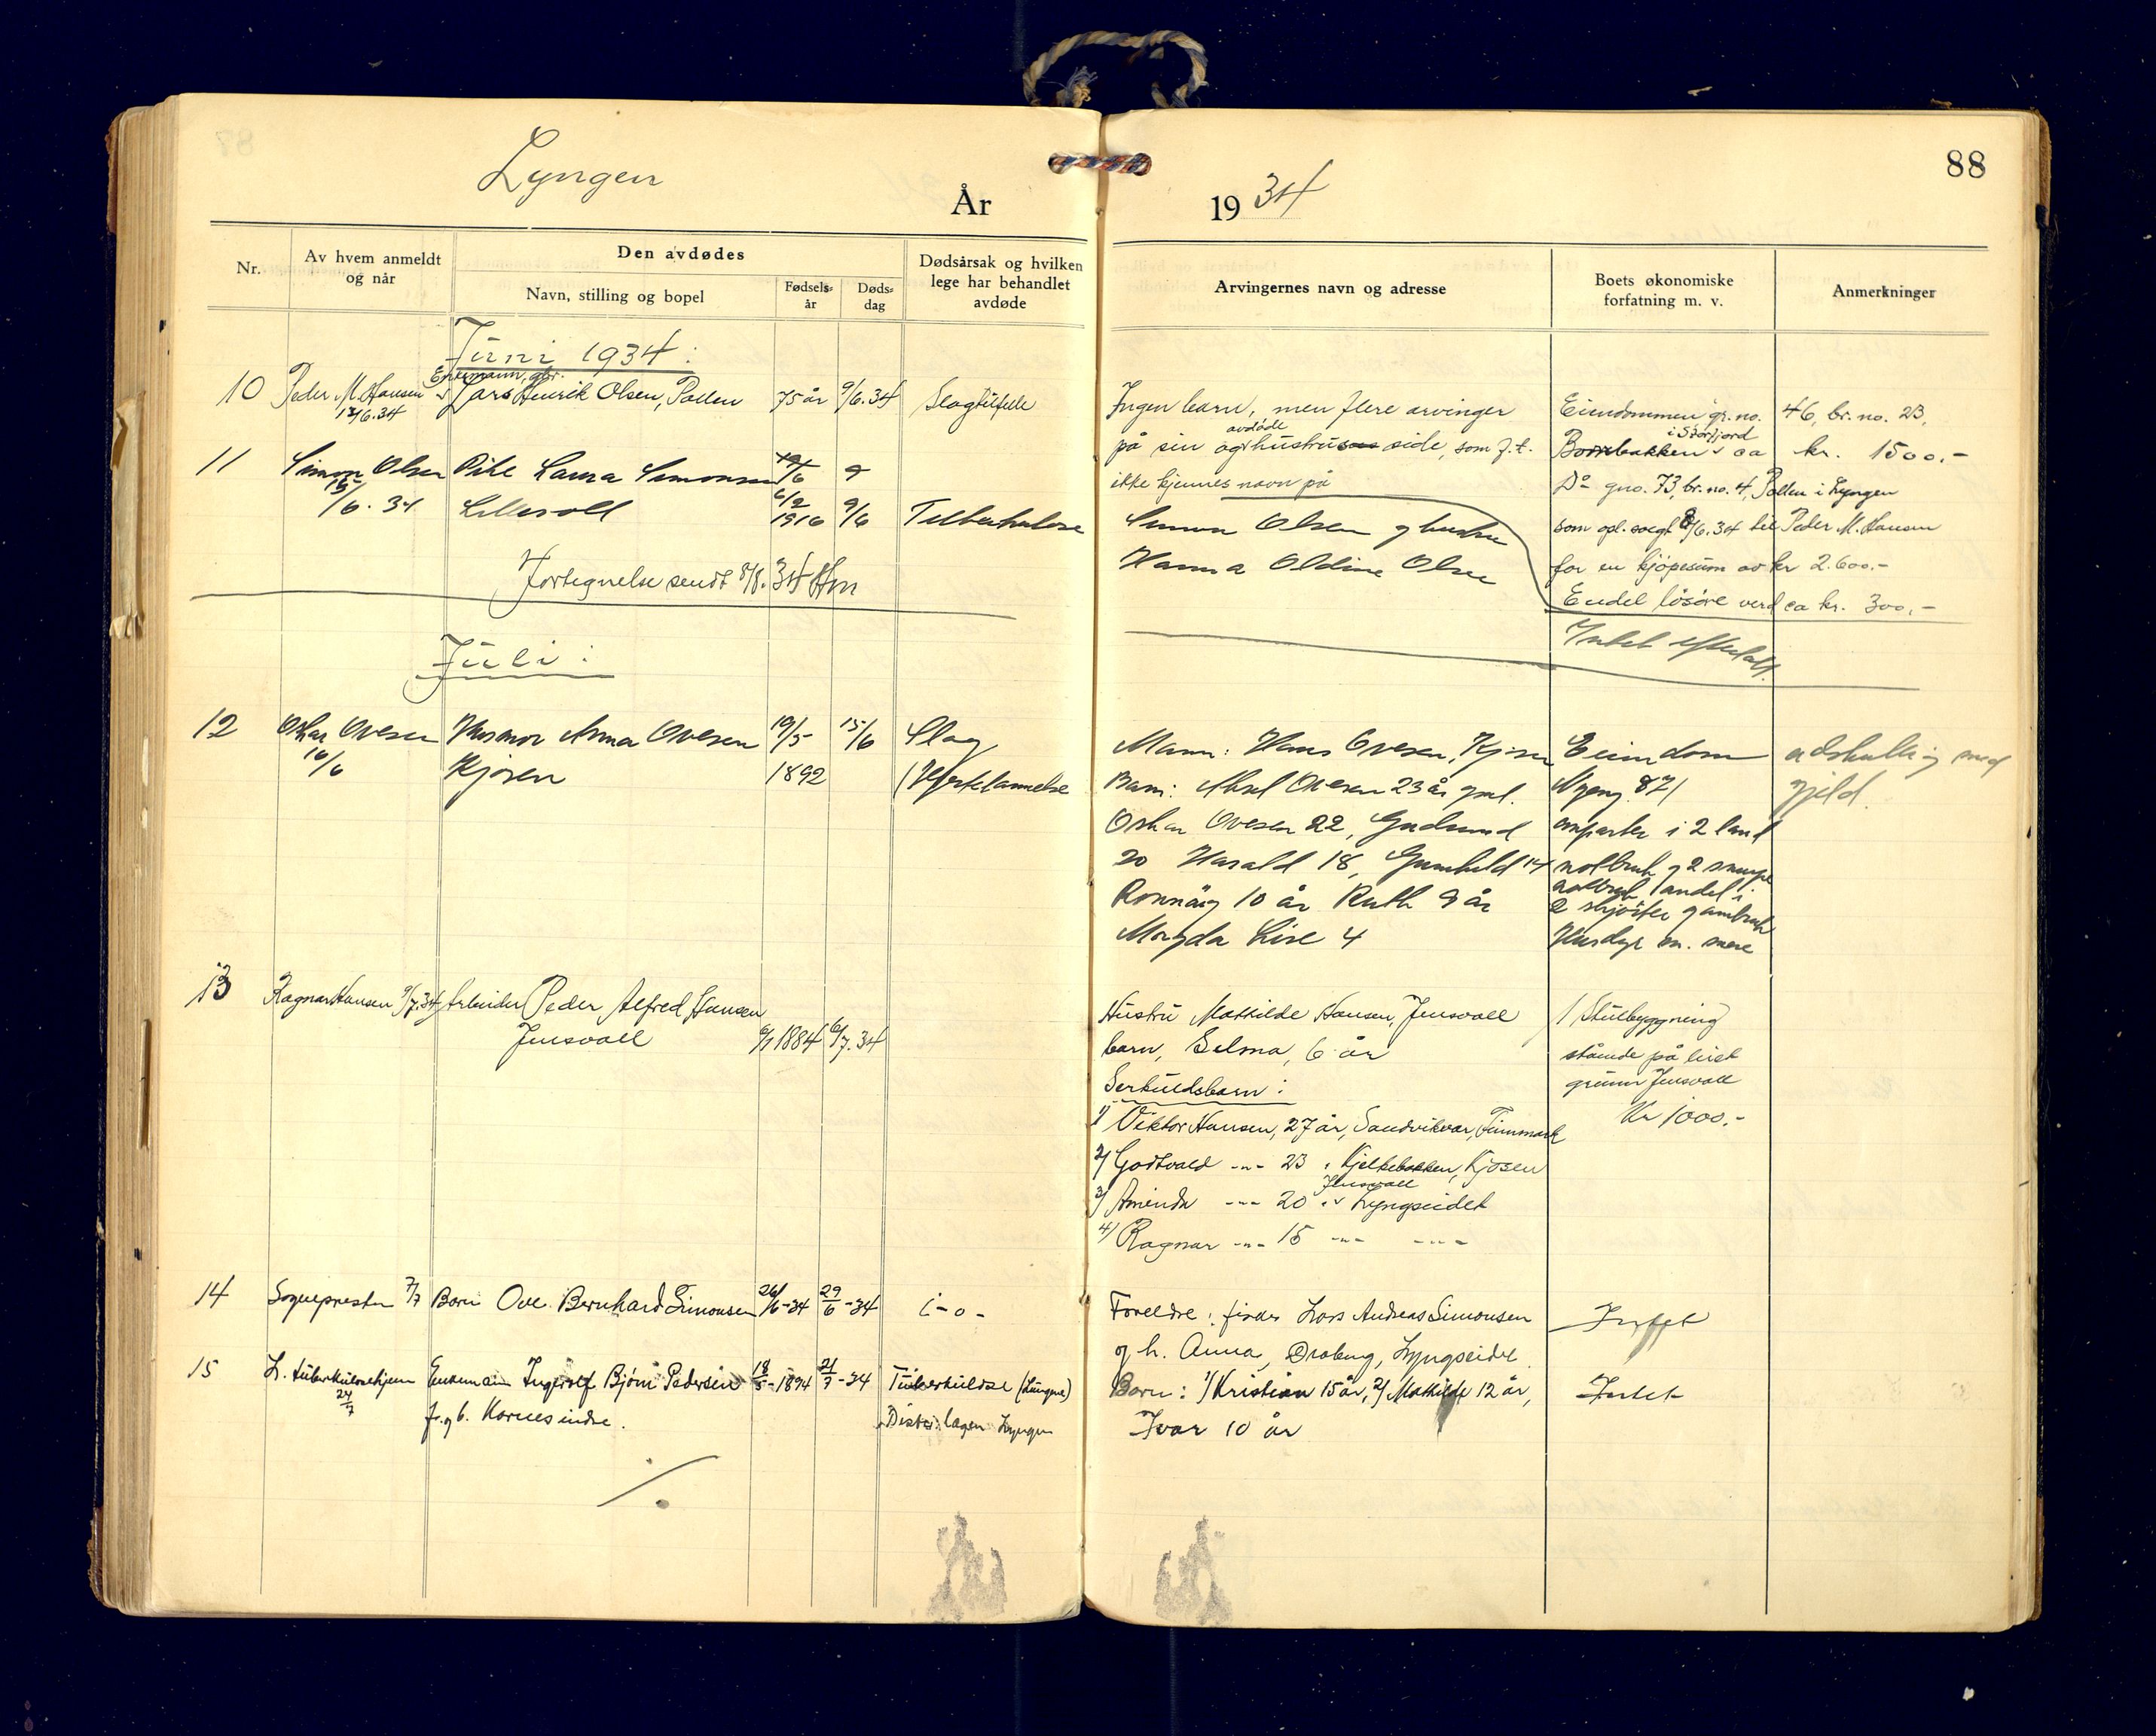 88
Lyngen
År
19 34
Nr.
Av hvem anmeldt
og når
Den avdødes
Navn, stilling og bopel
Fødsels-
år
Døds-
dag
Dødsårsak og hvilken
lege har behandlet
avdøde
Arvingernes navn og adresse
Boets økonomiske
forfatning m. v.
Anmerkninger
Juni 1934:
Enkemann, gbr.
10 Peder M. Hansen Lars Henrik Olsen, Pollen 75 år 9/6.34 Slagtilfelle
12/6.34
Ingen barn, men flere arvinger
avdøde
på sin hustrus side, som f.t.
ikke kjennes navn på
Eiendommen gr.no. 46, br. no. 23,
i Storfjord
ca kr. 1500.-
Do gno. 73, br. no. 4, Pollen i Lyngen
som opl. solgt 8/6.34 til Peder M. Hansen
for en kjøpesum av kr 2.600.-
Endel løsøre verd ca kr. 300,-
11 Simon Olsen Pike Laura Simonsen
15/6. 34 Lillevoll 6/2 1916 9/6 Tuberkulose
Simon Olsen og hustru
Hanna Oldine Olsen
Intet efterlatt.
Fortegnelse sendt 8/8. 34 Hm
Juli:
12 Oskar Ovesen Husmor Anna Ovesen 19/5 15/6 Slag
16/6 Kjosen 1892 (Hjertelammelse
Mann: Hans Ovesen, Kjosen
Barn: Aksel Ovesen 23 år gml.
Oskar Ovesen 22, Gudmund
20 Harald 18, Gunhild 14
Ronnaug 10 år Ruth 9 år
Magda Lise 4
Eiendom adskillig med
87/ gjeld.
anparter i 2 land
notbruk og 2 snurpe
notbruk (andel i
2 skjøiter garnbruk
Husdyr m. mere
13 Ragnar Hansen 9/7.34 Arbeider Peder Alfred Hansen
Jensvoll 6/1 1884 6/7.34
Hustru Mathilde Hansen, Jensvoll
barn, Selma, 6 år
Særkuldsbarn:
1) Viktor Hansen, 27 år, Sandvikvær, Finnmark
2) Godtvald -"- 23 " Kjelkebakken, Kjosen
Jensvoll
3) Aminda -"- 20 " Lyngseidet
4) Ragnar -"- 15 -"- -"-
1 Stuebyggning
stående på leiet
grunn Jensvoll
Kr 1000.-
14 Sognepresten 7/7 Barn Ove Bernhard Simonsen 26/6-34 29/6-34 i-o-
Foreldre: fisker Lars Andreas Simonsen
og h. Anna, Lyngseidet.
Intet
15 L. tuberkulosehjem Enkemann Ingerolf Bjørn Pedersen 18/5-1894 21/7-34 Tuberkulose (Lunger)
24/7 f. og b. Karnes indre. Distr. lægen Lyngen
Barn: 1) Kristian 15 år, 2) Mathilde 12 år,
Ivar 10 år
Intet